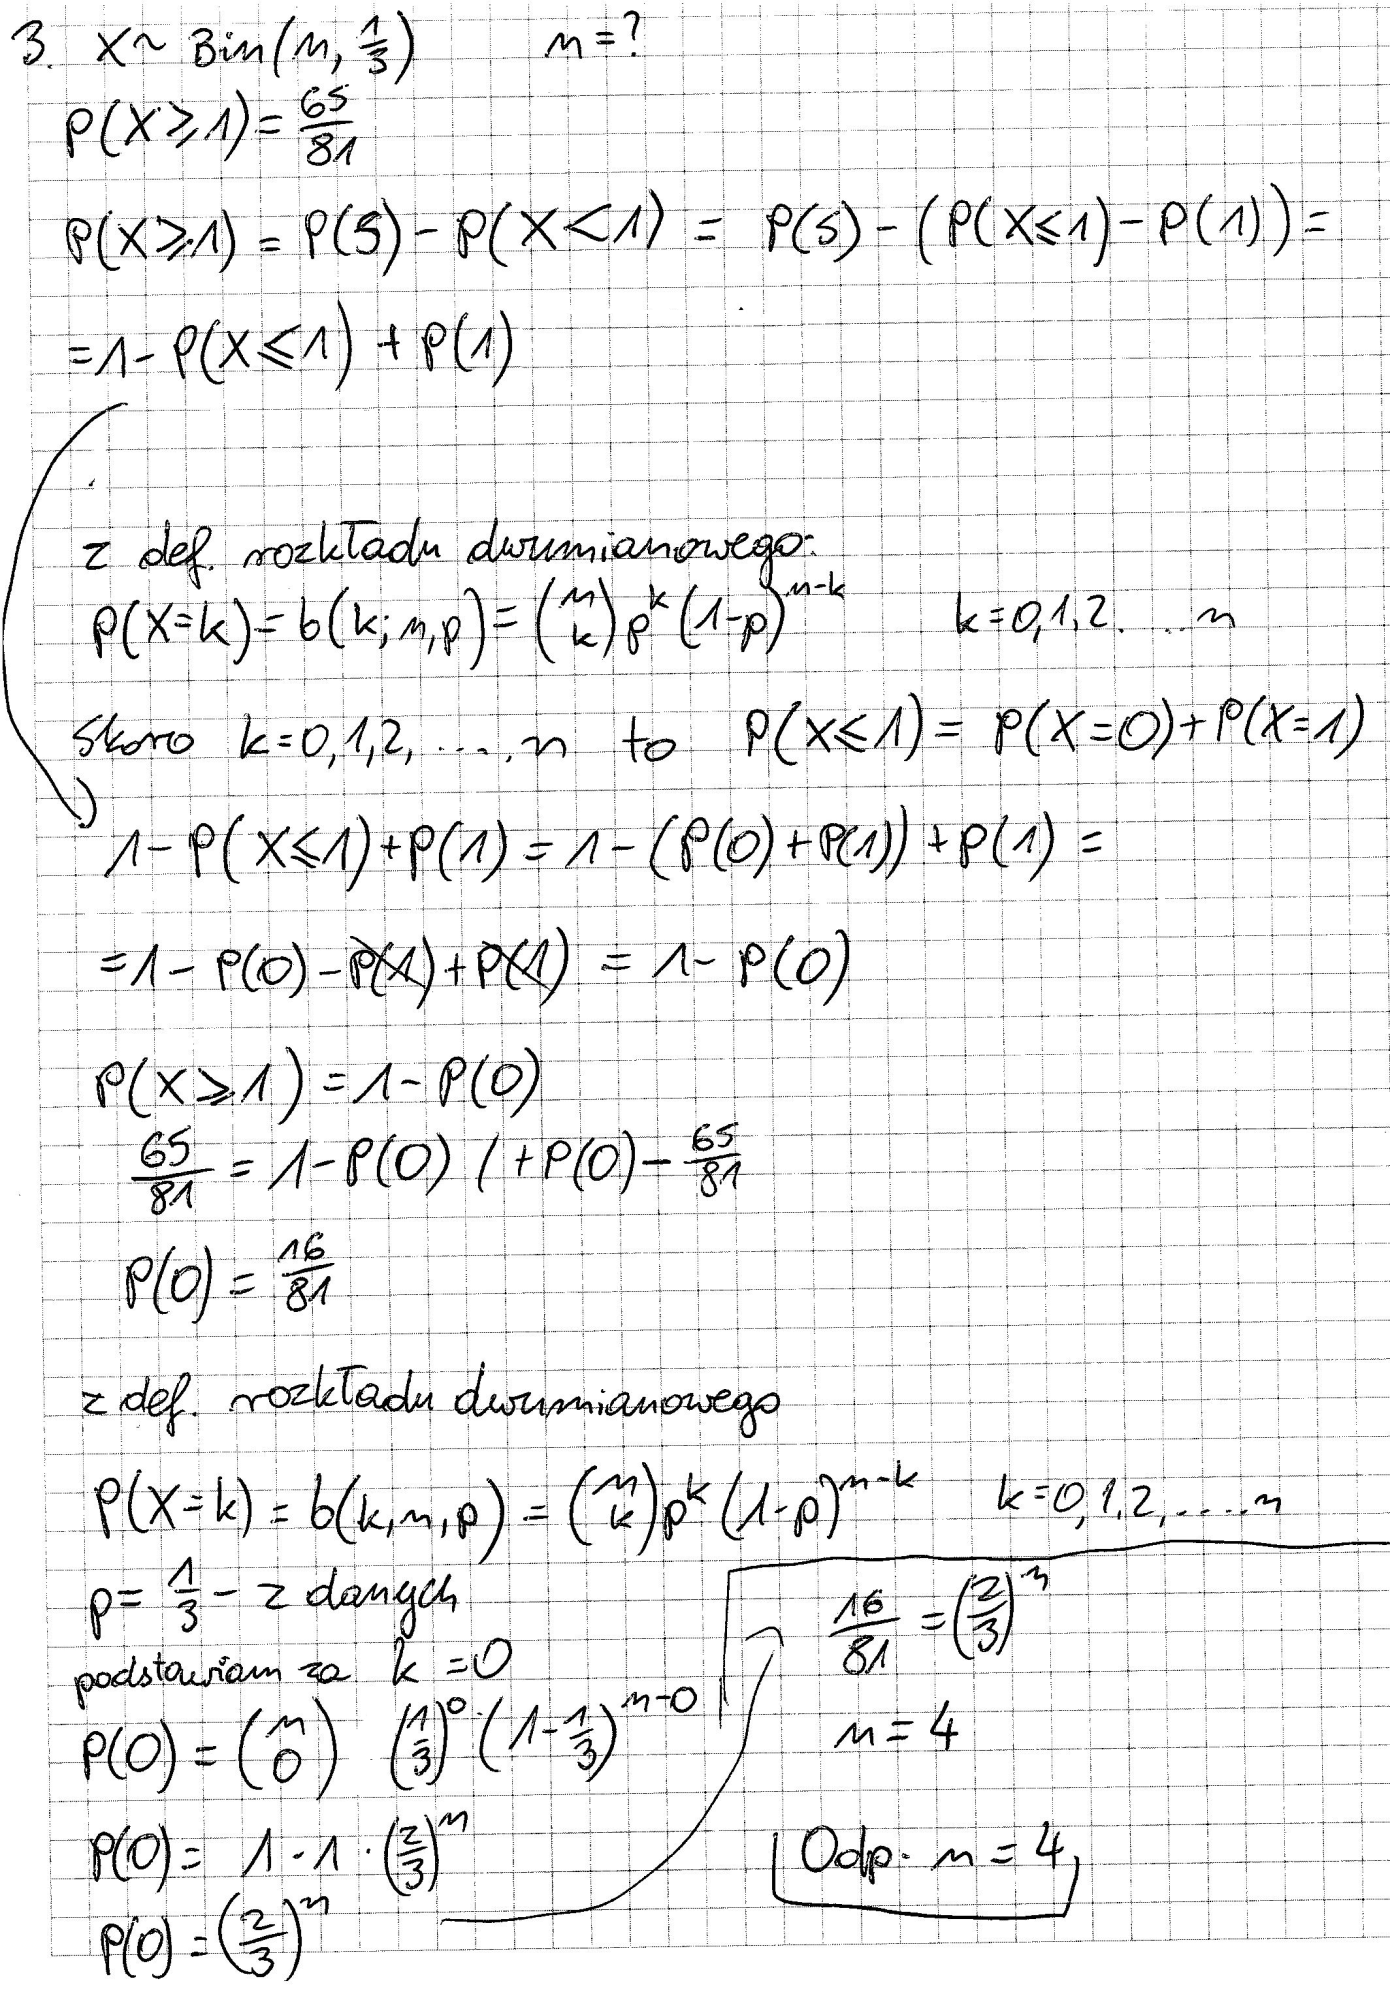 3. X ~ Bin(n, 1/3) n = ?
P(X ≥ 1) = 65/81
P(X ≥ 1) = P(S) - P(X < 1) = P(S) - (P(X ≤ 1) - P(1)) =
= 1 - P(X ≤ 1) + P(1)
z def. rozkładu dwumianowego:
P(X=k) = b(k; n, p) = (n k) p^k (1-p)^{n-k} k = 0, 1, 2. .... n
Skoro k = 0, 1, 2, ...., n to P(X ≤ 1) = P(X=0) + P(X=1)
1 - P(X ≤ 1) + P(1) = 1 - (P(0) + P(1)) + P(1) =
= 1 - P(0) - P(1) + P(1) = 1 - P(0)
P(X ≥ 1) = 1 - P(0)
65/81 = 1 - P(0) / + P(0) - 65/81
P(0) = 16/81
z def. rozkładu dwumianowego
P(X=k) = b(k, n, p) = (n k) p^k (1-p)^{n-k} k = 0, 1, 2, .... n
p = 1/3 - z danych
podstawiam za k = 0
P(0) = (n 0) (1/3)^0 · (1 - 1/3)^{n-0}
P(0) = 1 · 1 · (2/3)^n
P(0) = (2/3)^n
16/81 = (2/3)^n
n = 4
Odp. n = 4